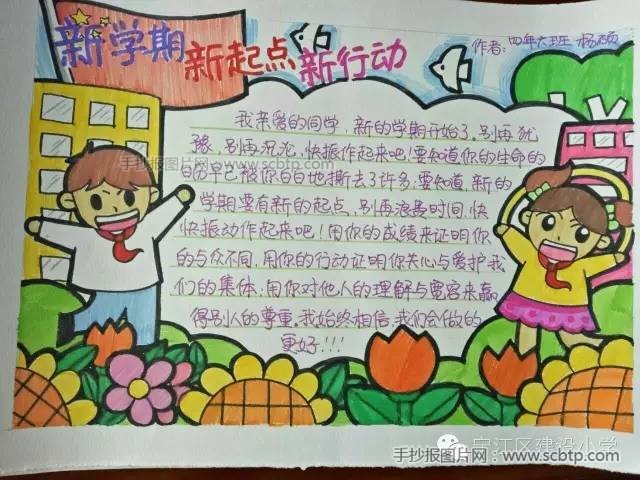 新学期 新起点 新行动
作者:四年六班 杨硕
我亲爱的同学,新的学期开始了,别再犹
豫,别再沉沦,快振作起来吧!要知道你的生命的
日历早已被你白白地撕去了许多;要知道,新的
学期要有新的起点,别再浪费时间,快
快振动作起来吧!用你的成绩来证明你
的与众不同,用你的行动证明你关心与爱护我
们的集体,用你对他人的理解与宽容来赢
得别人的尊重,我始终相信,我们会做的
更好!!!
手抄报图片网 - www.scbtp.com
宁江区建设小学
手抄报图片网 - www.scbtp.com